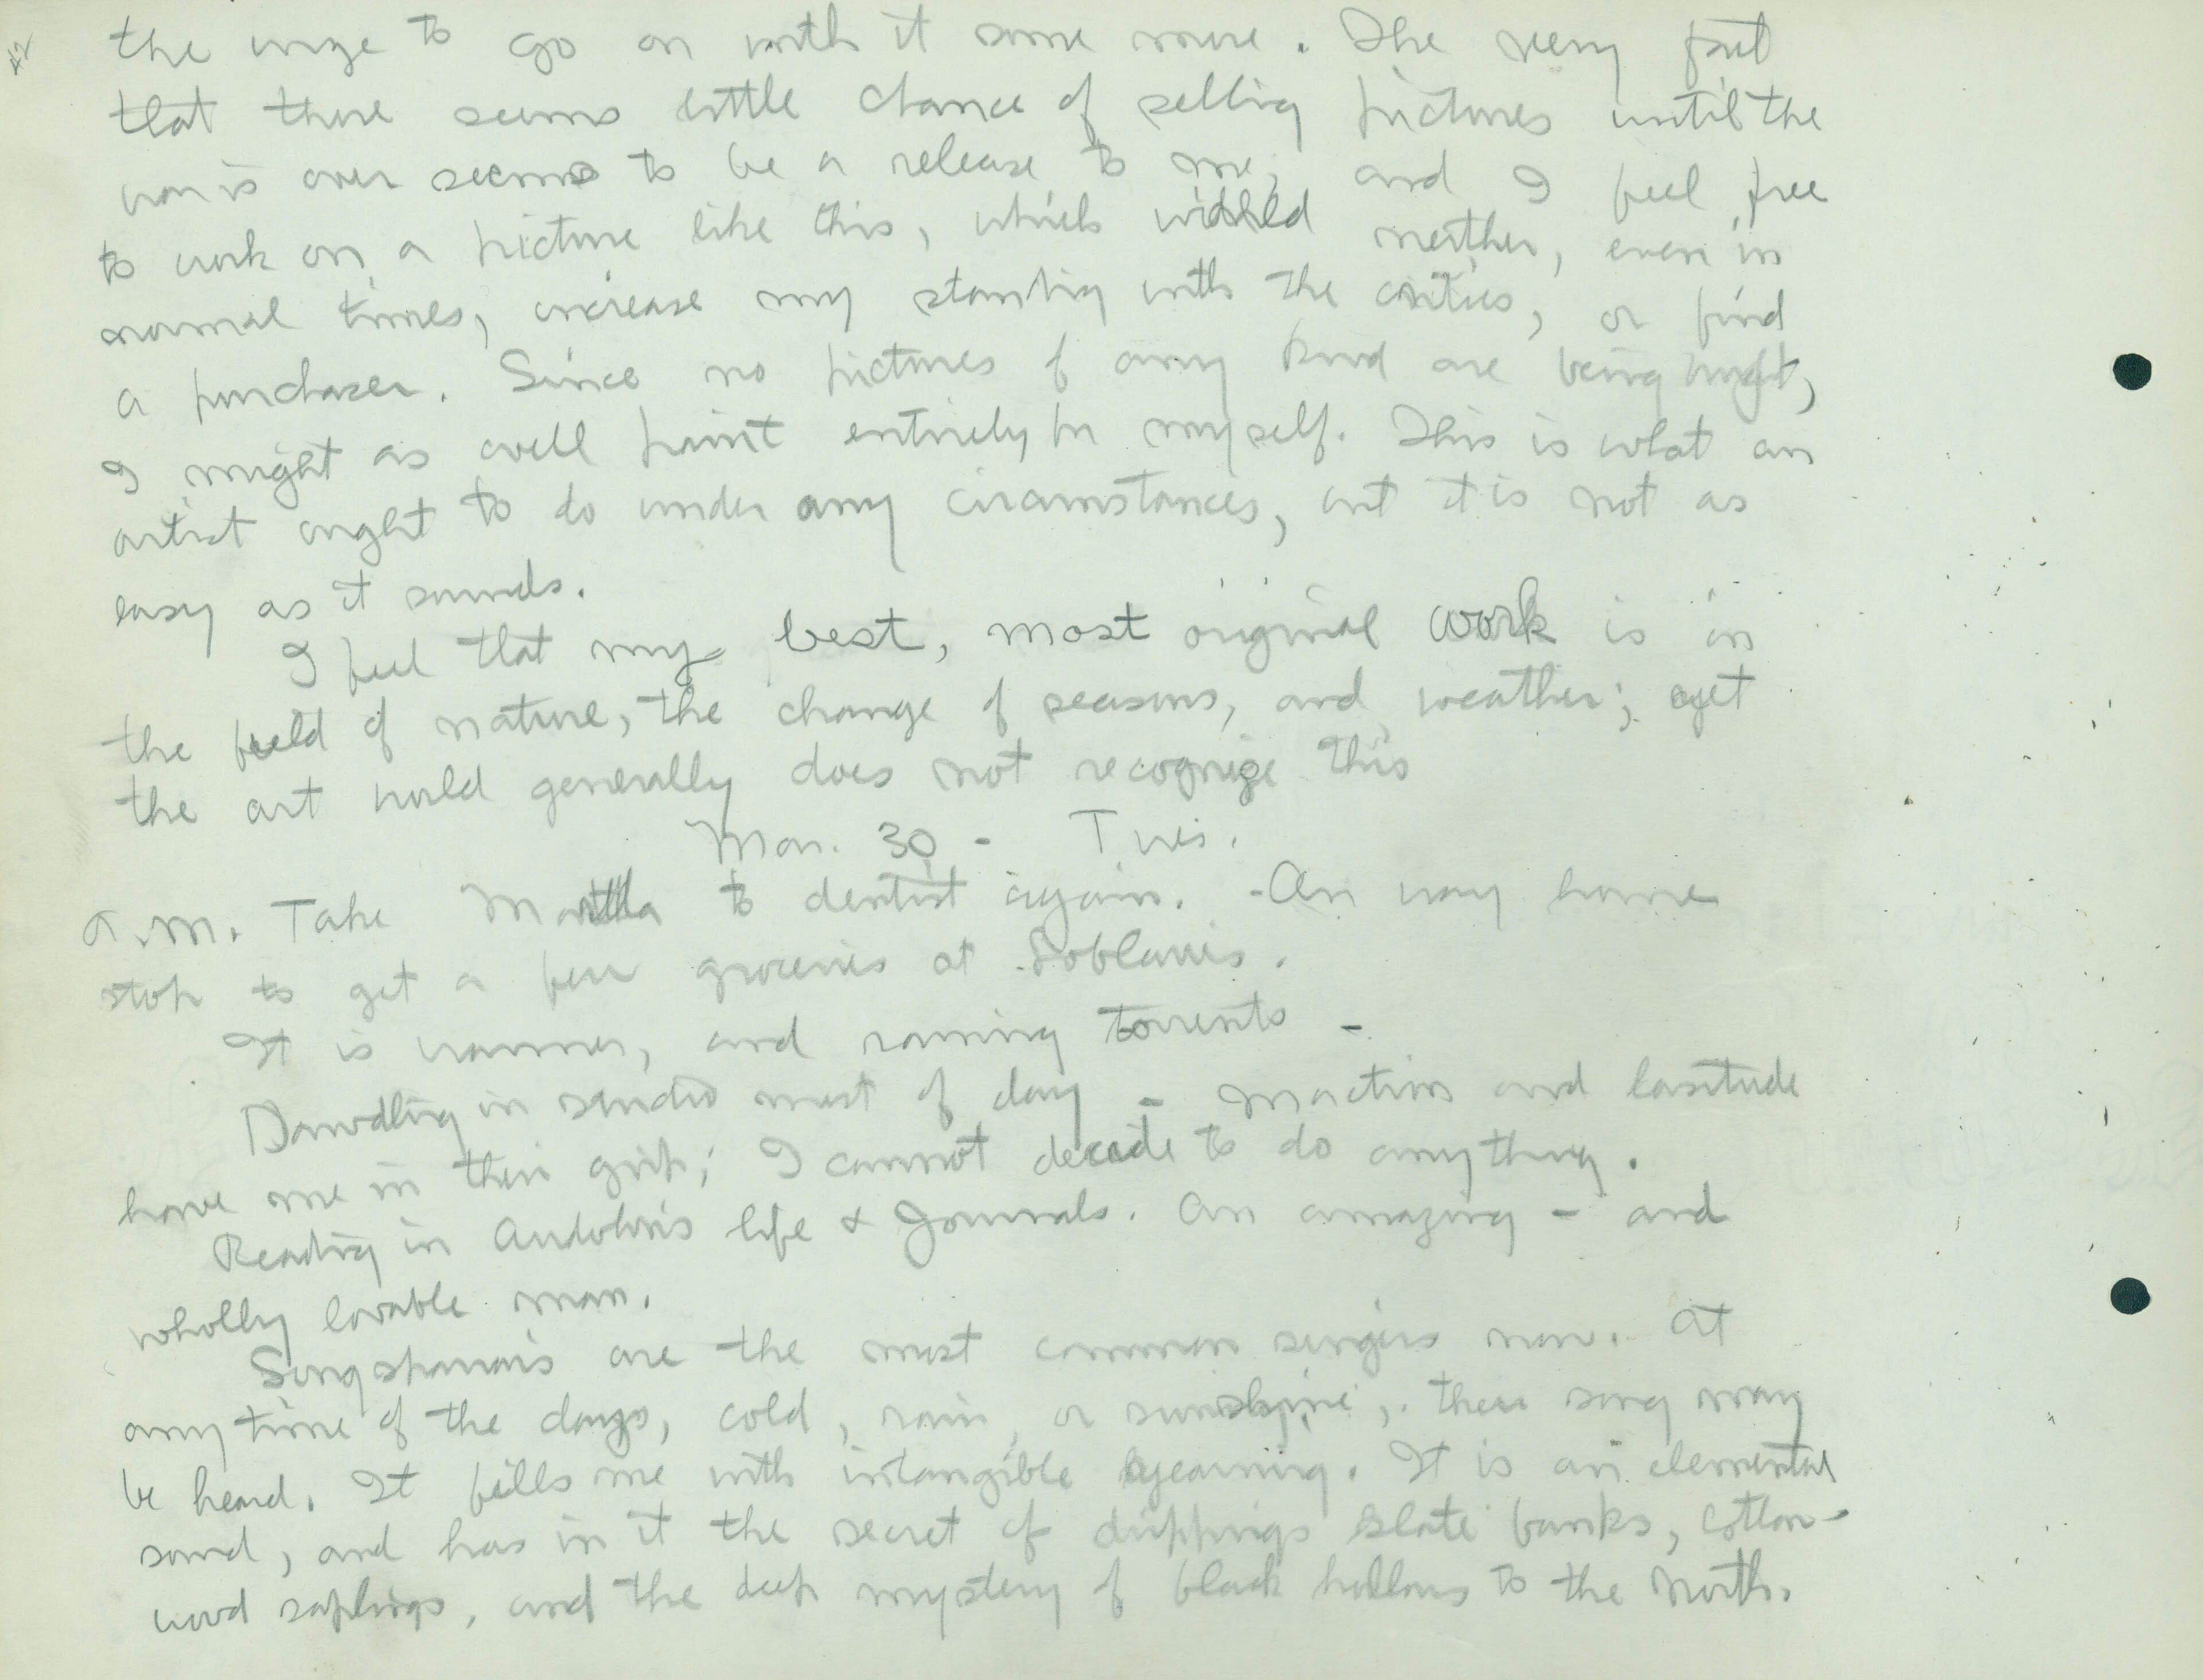 the urge to go on with it some more. The very fact
that there seems little chance of selling pictures until the
war is over seems to be a release to me, and I feel free
to work on a picture like this, which would neither, even in
normal times, increase my standing with the critics, or find
a purchaser. Since no pictures of any kind are being bought,
I might as well paint entirely for myself. This is what an
artist ought to do under any circumstances, but it is not as
easy as it sounds.
I feel that my best, most original work is in
the field of nature, the change of seasons, and weather; yet
the art world generally does not recognize this
Mar. 30 - Tues.
A.M. Take Martha to dentist again. - On way home
stop to get a few groceries at Loblaws.
It is warmer, and raining torrents -
Dawdling in studio most of day - Inaction and lasitude
have me in their grip; I cannot decide to do anything.
Reading in Audobon's life & Journals. An amazing - and
wholly lovable man.
Song sparrows are the most common singers now. At
any time of the days, cold, rain, or sunshine, their song may
be heard. It fills me with intangible yearning. It is an elemental
sound, and has in it the secret of drippings slate banks, cotton-
wood saplings, and the deep mystery of black hollows to the North.